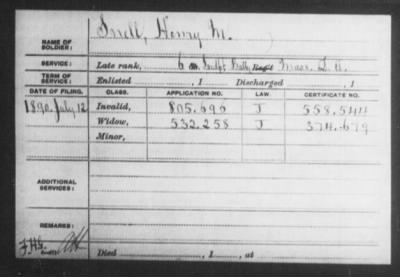 NAME OF SOLDIER: Snell, Henry M.
SERVICE: Late rank, 6 Batty Mass. L. A.
TERM OF SERVICE: Enlisted , 1 Discharged , 1
DATE OF FILING. CLASS. APPLICATION NO. LAW. CERTIFICATE NO.
1890. July 12 Invalid, 805.696 J 558.544
Widow, 532.258 J 374.679
Minor,
ADDITIONAL SERVICES:
REMARKS:
Died , 1 , at